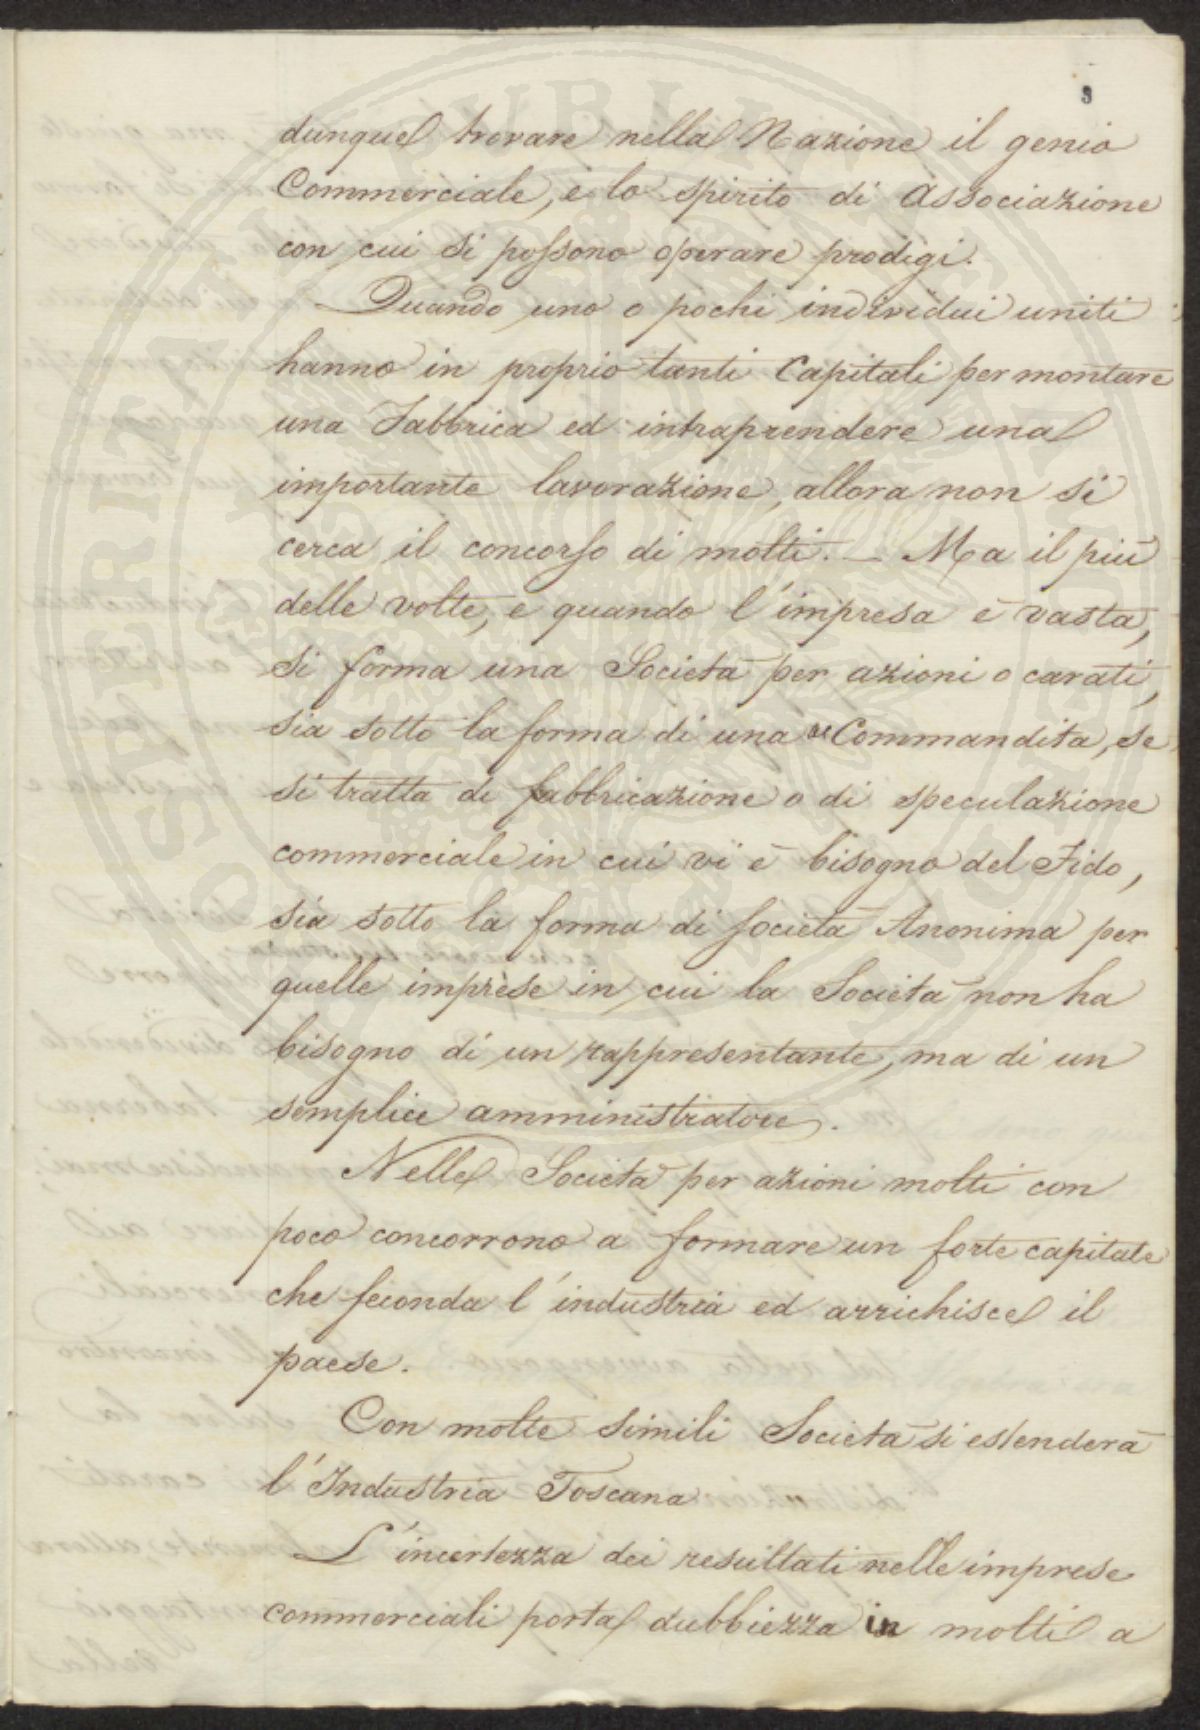 3
dunque trovare nella Nazione il genio
Commerciale, e lo spirito di Associazione
con cui si possono operare prodigi.
Quando uno o pochi individui uniti
hanno in proprio tanti Capitali per montare
una Fabbrica ed intraprendere una
importante lavorazione, allora non si
cerca il concorso di molti. — Ma il più
delle volte, e quando l'impresa è vasta,
si forma una Società per azioni o carati,
sia sotto la forma di una Commandita, se
si tratta di fabbricazione o di speculazione
commerciale in cui vi è bisogno del Fido,
sia sotto la forma di società Anonima per
quelle imprese in cui la Società non ha
bisogno di un rappresentante, ma di un
semplice amministratore.
Nelle Società per azioni molti con
poco concorrono a formare un forte capitale
che feconda l'industria ed arrichisce il
paese.
Con molte simili Società si estenderà
l'Industria Toscana
L'incertezza dei resultati nelle imprese
commerciali porta dubbiezza in molti a